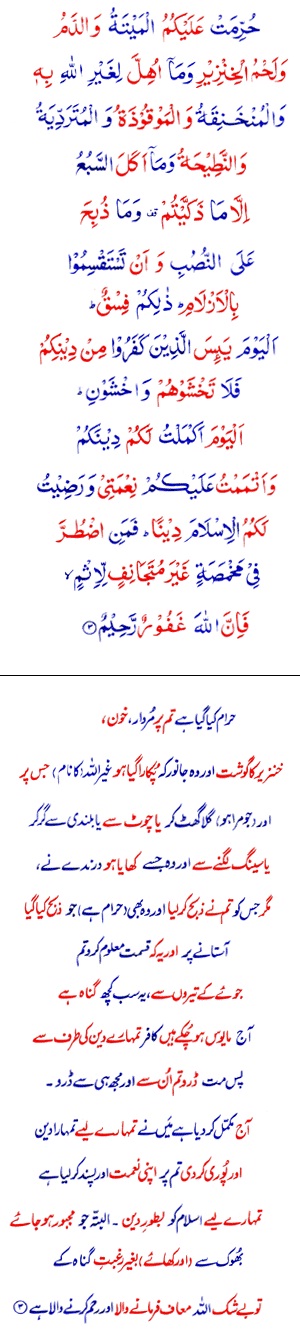 حُرِّمَتْ عَلَيْكُمُ الْمَيْتَةُ وَالدَّمُ
وَلَحْمُ الْخِنْزِيْرِ وَمَاۤ اُهِلَّ لِغَيْرِ اللّٰهِ بِهٖ
وَالْمُنْخَنِقَةُ وَالْمَوْقُوْذَةُ وَالْمُتَرَدِّيَةُ
وَالنَّطِيْحَةُ وَمَاۤ اَكَلَ السَّبُعُ
اِلَّا مَا ذَكَّيْتُمْ ۟ وَمَا ذُبِحَ
عَلَى النُّصُبِ وَاَنْ تَسْتَقْسِمُوْا
بِالْاَزْلَامِ ؕ ذٰلِكُمْ فِسْقٌ ؕ
اَلْيَوْمَ يَىِٕسَ الَّذِيْنَ كَفَرُوْا مِنْ دِيْنِكُمْ
فَلَا تَخْشَوْهُمْ وَاخْشَوْنِ ؕ
اَلْيَوْمَ اَكْمَلْتُ لَكُمْ دِيْنَكُمْ
وَاَتْمَمْتُ عَلَيْكُمْ نِعْمَتِيْ وَرَضِيْتُ
لَكُمُ الْاِسْلَامَ دِيْنًا ؕ فَمَنِ اضْطُرَّ
فِيْ مَخْمَصَةٍ غَيْرَ مُتَجَانِفٍ لِّاِثْمٍ ۙ
فَاِنَّ اللّٰهَ غَفُوْرٌ رَّحِيْمٌ ۝۳
حرام کیا گیا ہے تم پر مُردار، خون،
خنزیر کا گوشت اور وہ جانور کہ پُکارا گیا ہو غیراللہ (کا نام) جس پر
اور (جو مَرا ہو) گلا گھٹ کر یا چوٹ سے یا بلندی سے گر کر
یا سینگ لگنے سے اور وہ جسے کھایا ہو درندے نے،
مگر جس کو تم نے ذبح کر لیا اور وہ بھی (حرام ہے) جو ذبح کیا گیا
آستانے پر اور یہ کہ قسمت معلوم کرو تم
جوئے کے تیروں سے، یہ سب کچھ گناہ ہے
آج مایوس ہو چُکے ہیں کافر تمہارے دین کی طرف سے
پس مت ڈرو تم اُن سے اور مجھ ہی سے ڈرو۔
آج مکمّل کر دیا ہے مَیں نے تمہارے لیے تمہارا دین
اور پُوری کر دی تم پر اپنی نعمت اور پسند کر لیا ہے
تمہارے لیے اسلام کو بطورِ دین۔ البتّہ جو مجبور ہو جائے
بھُوک سے (اور کھالے) بغیر رغبتِ گناہ کے
تو بے شک اللہ معاف فرمانے والا اور رحم کرنے والا ہے ۝۳